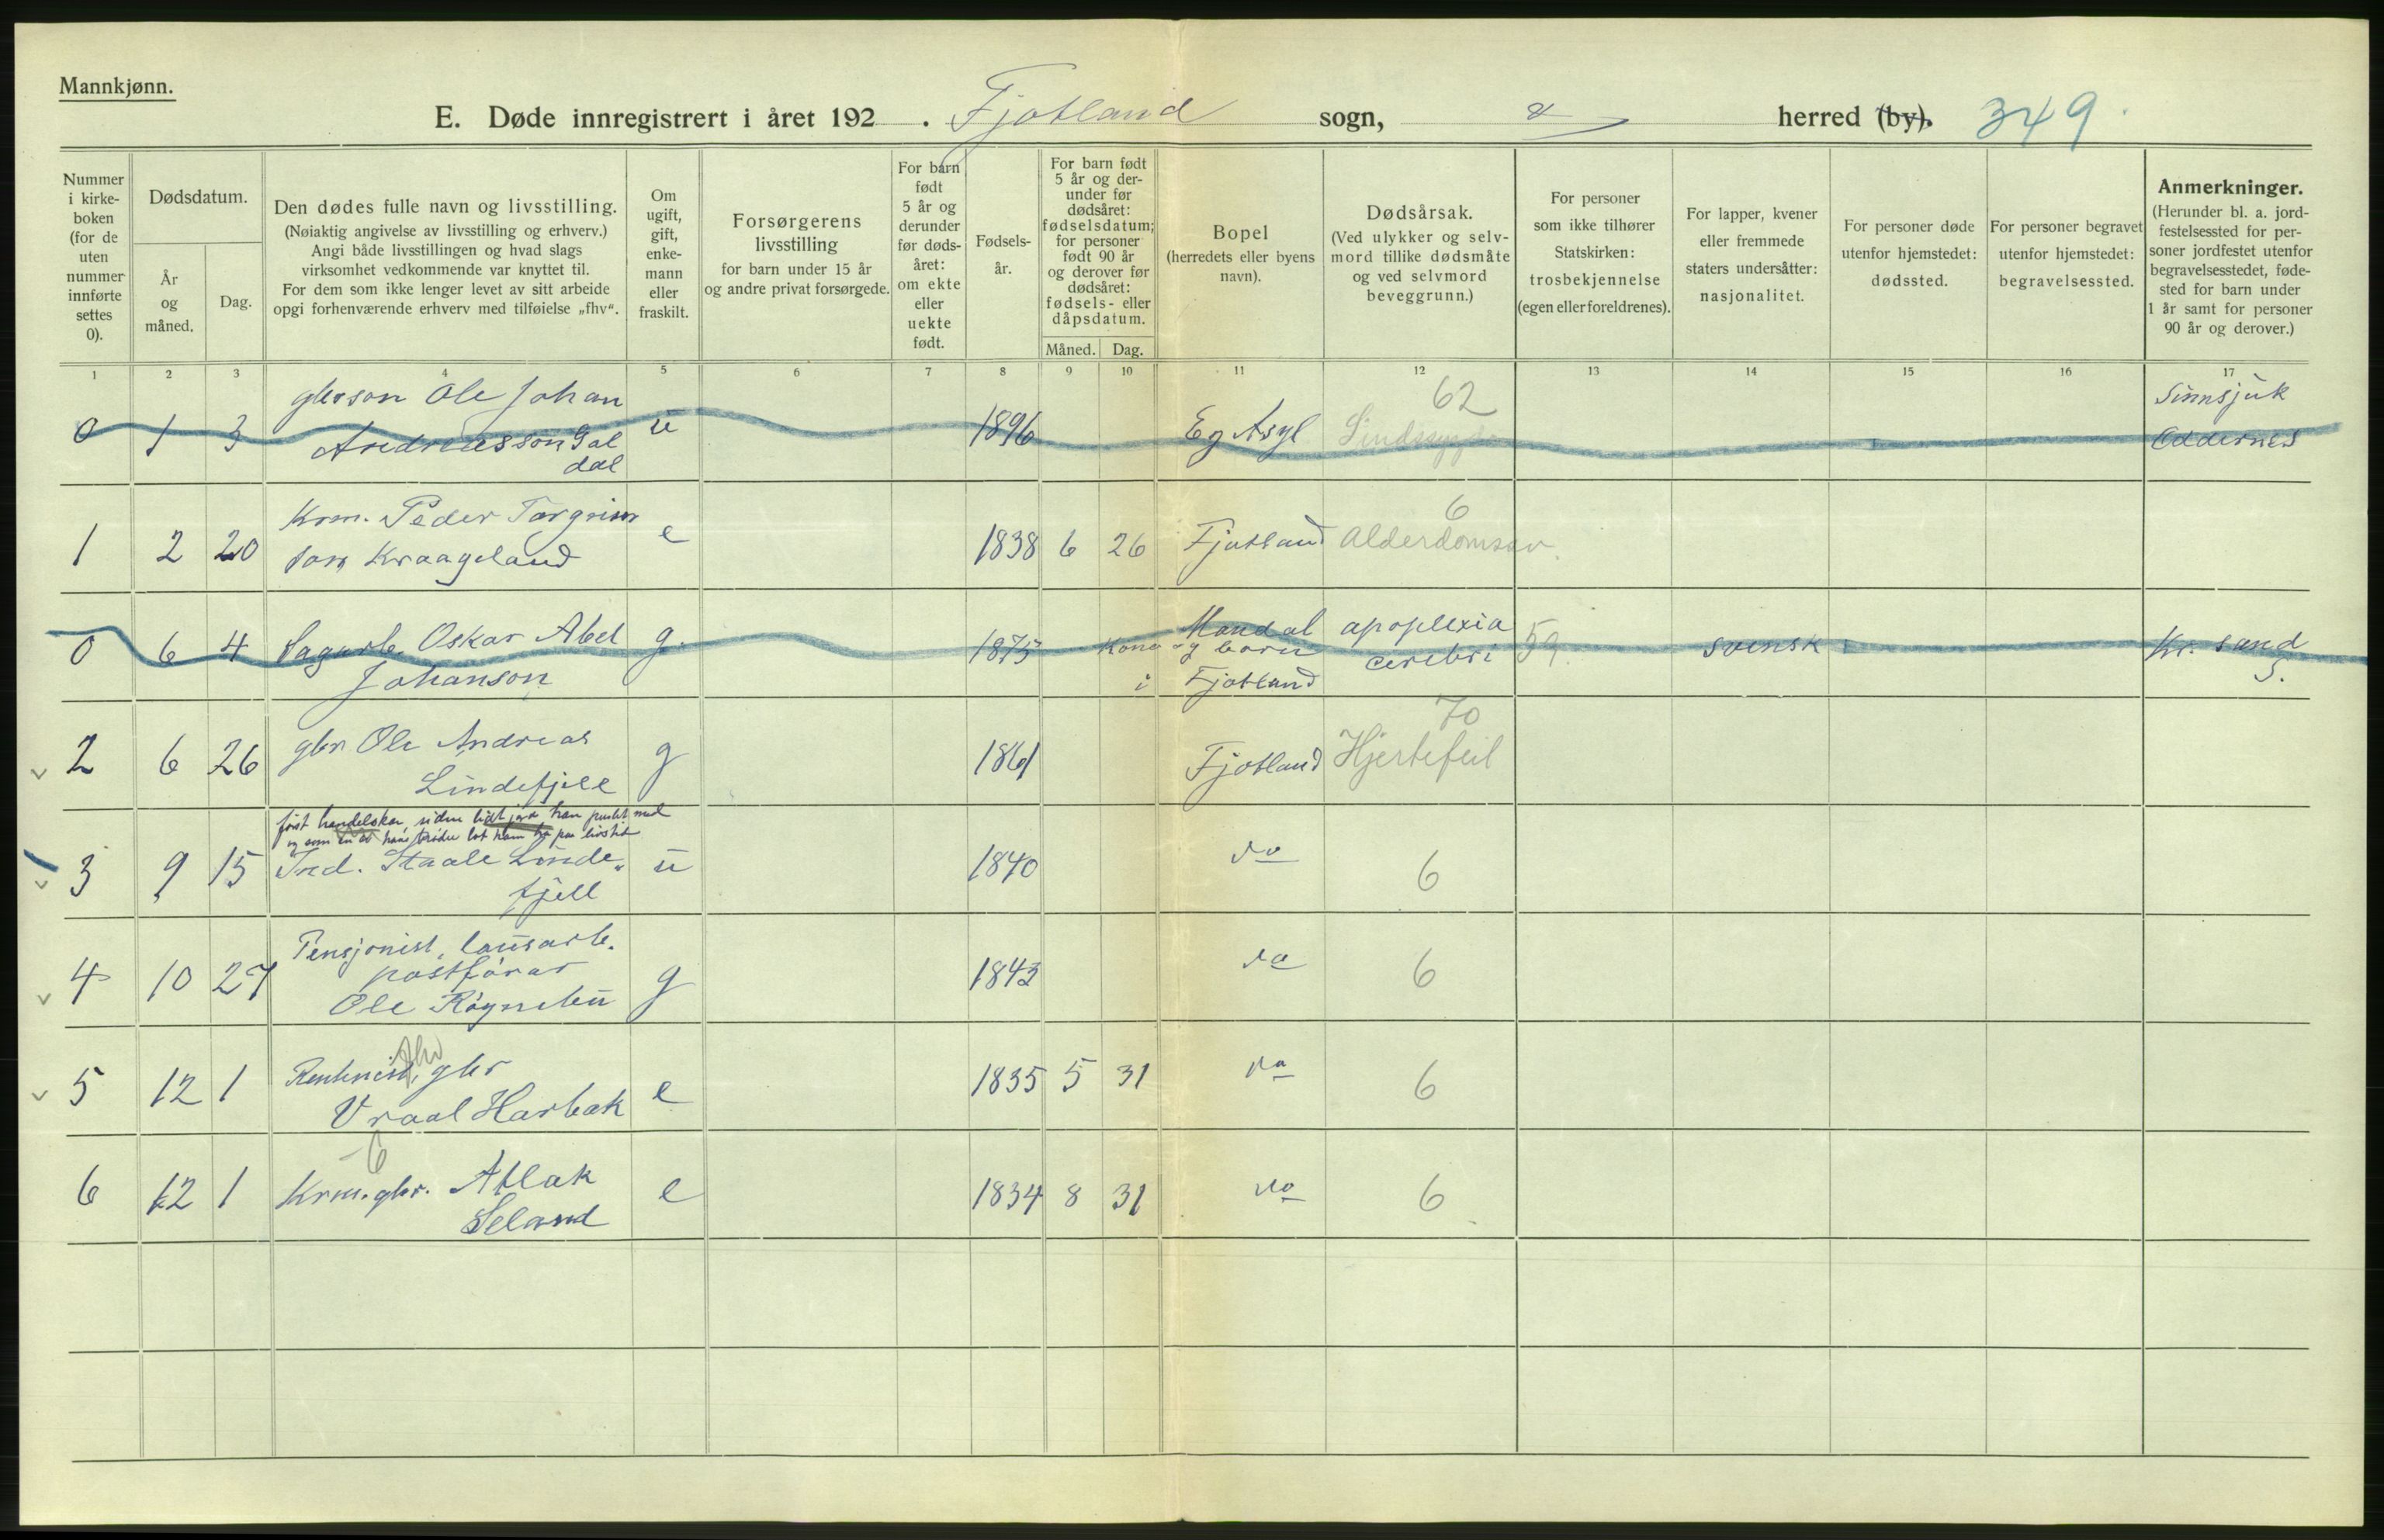 Mannkjønn.
E. Døde innregistrert i året 192 . Fjotland sogn, herred (by). 349
Nummer i kirke-boken (for de uten nummer innførte settes 0).
Dødsdatum.
År og måned.
Dag.
Den dødes fulle navn og livsstilling.
(Nøiaktig angivelse av livsstilling og erhverv.)
Angi både livsstillingen og hvad slags
virksomhet vedkommende var knyttet til.
For dem som ikke lenger levet av sitt arbeide
opgi forhenværende erhverv med tilføielse „fhv“.
Om ugift, gift, enke-mann eller fraskilt.
Forsørgerens livsstilling
for barn under 15 år
og andre privat forsørgede.
For barn født 5 år og derunder før døds-året: om ekte eller uekte født.
Fødsels-år.
For barn født 5 år og der-under før dødsåret: fødselsdatum; for personer født 90 år og derover før dødsåret: fødsels- eller dåpsdatum.
Måned. Dag.
Bopel
(herredets eller byens navn).
Dødsårsak.
(Ved ulykker og selv-mord tillike dødsmåte og ved selvmord beveggrunn.)
For personer som ikke tilhører Statskirken: trosbekjennelse (egen eller foreldrenes).
For lapper, kvener eller fremmede staters undersåtter: nasjonalitet.
For personer døde utenfor hjemstedet: dødssted.
For personer begravet utenfor hjemstedet: begravelsessted.
Anmerkninger.
(Herunder bl. a. jord-festelsessted for per-soner jordfestet utenfor begravelsesstedet, føde-sted for barn under 1 år samt for personer 90 år og derover.)
1 2 3 4 5 6 7 8 9 10 11 12 13 14 15 16 17
gbrson Ole Johan 62 Sinnsjuk
0 1 3 Andreasson Gal u 1896 Eg Asyl Sindssygdo Oddernes
dal
Krm. Peder Torgrim 6
1 2 20 son Kraageland e 1838 6 26 Fjotland Alderdomssv.
0 6 4 Sagarb. Oskar Abel g. 1875 Kone og born Mandal apoplexia 59. svensk Kr. sand
Johanson i Fjotland cerebri S.
70
2 6 26 gbr Ole Andreas g 1861 Fjotland Hjertefeil
Lindefjell
først handelskar, siden han puslet med
3 9 15 Ind. Staale Linde u 1840 do 6
fjell
Pensjonist, lausarb.
4 10 27 postførar g 1843 do 6
Ole Røynebu
fhv
5 12 1 Rentenist, gbr e 1835 5 31 do 6
Vraal Harbak
6
6 12 1 Krm. gbr. Atlak e 1834 8 31 do 6
Seland